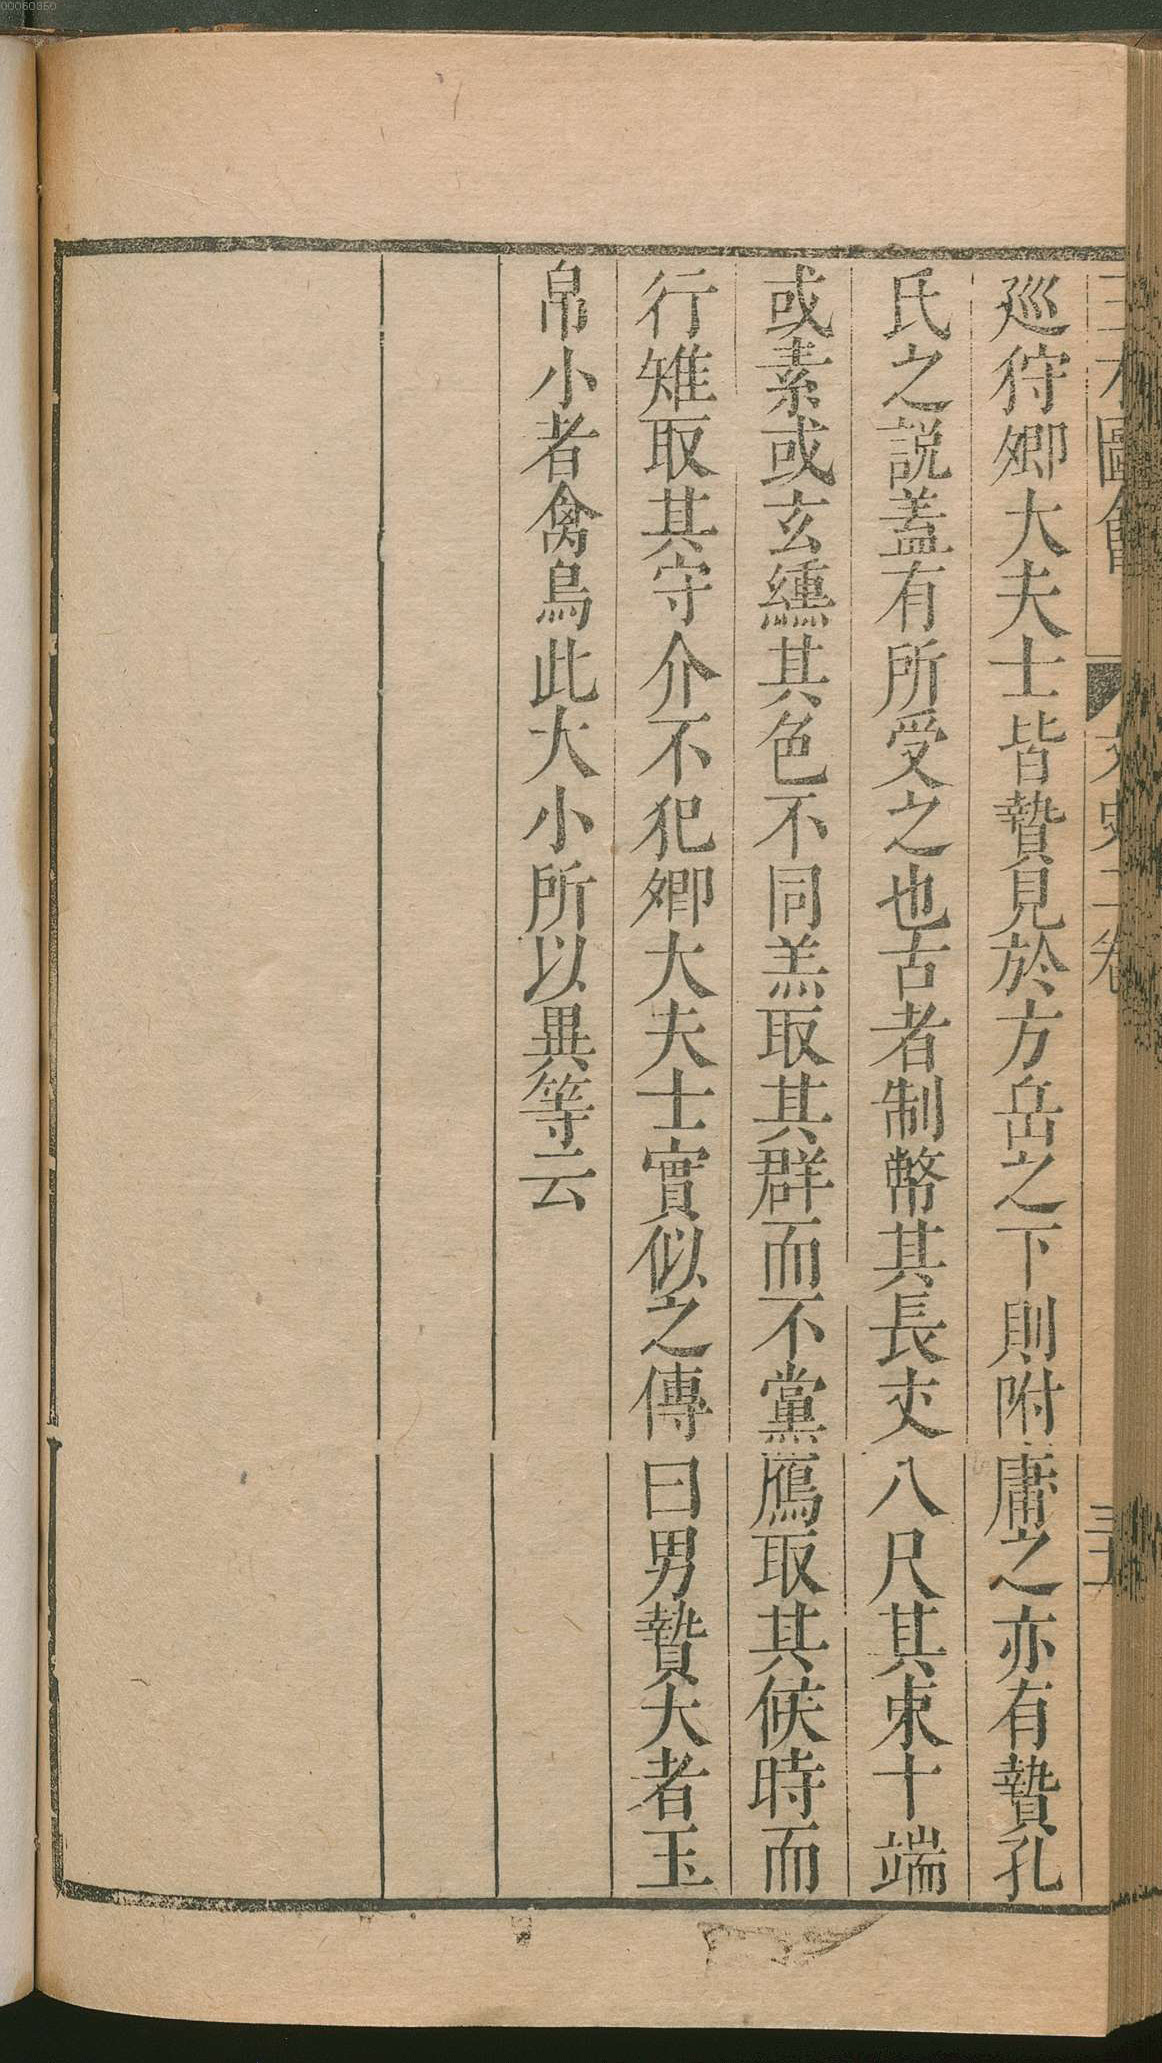 00060350
三才圖會 文史二卷
巡狩卿大夫士皆贄見於方岳之下則附庸之亦有贄孔
氏之説蓋有所受之也古者制幣其長丈八尺其束十端
或素或玄纁其色不同羔取其群而不黨鴈取其候時而
行雉取其守介不犯卿大夫士實似之傳曰男贄大者玉
帛小者禽鳥此大小所以異等云